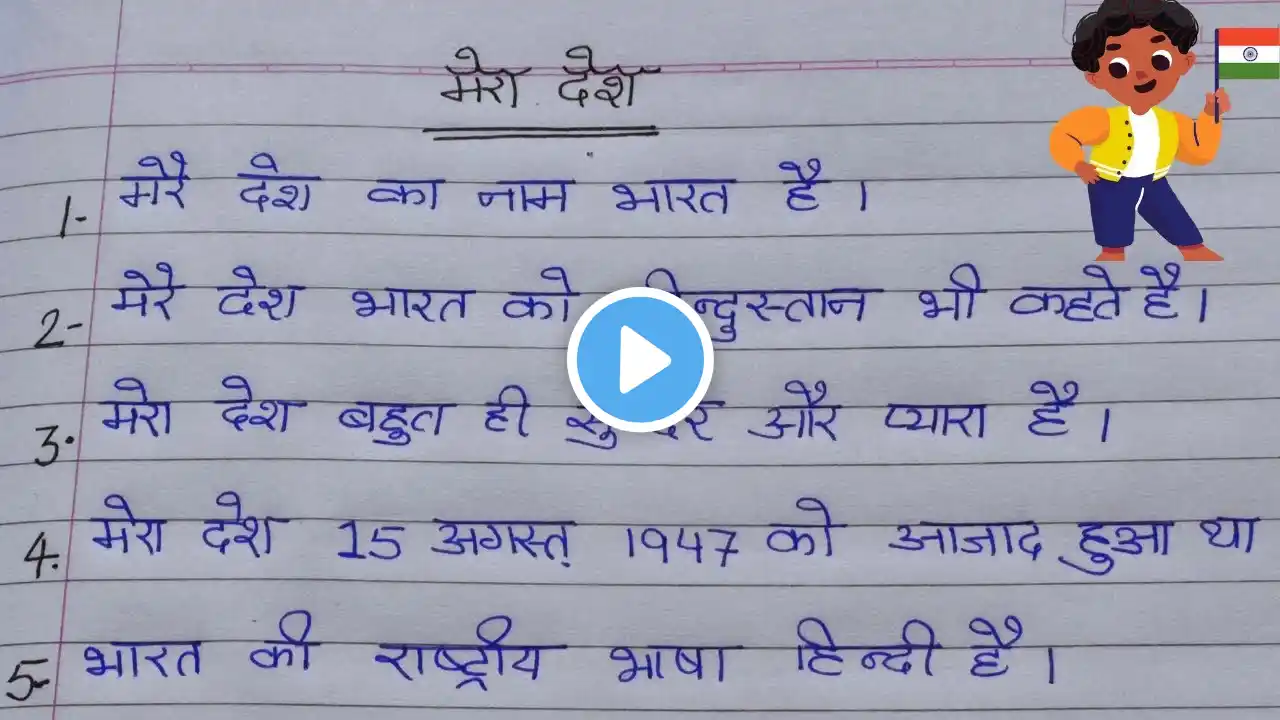 मेरा देश
1- मेरे देश का नाम भारत है।
2- मेरे देश भारत को हिन्दुस्तान भी कहते है।
3. मेरा देश बहुत ही सुन्दर और प्यारा है।
4. मेरा देश 15 अगस्त 1947 को आजाद हुआ था
5- भारत की राष्ट्रीय भाषा हिन्दी है।